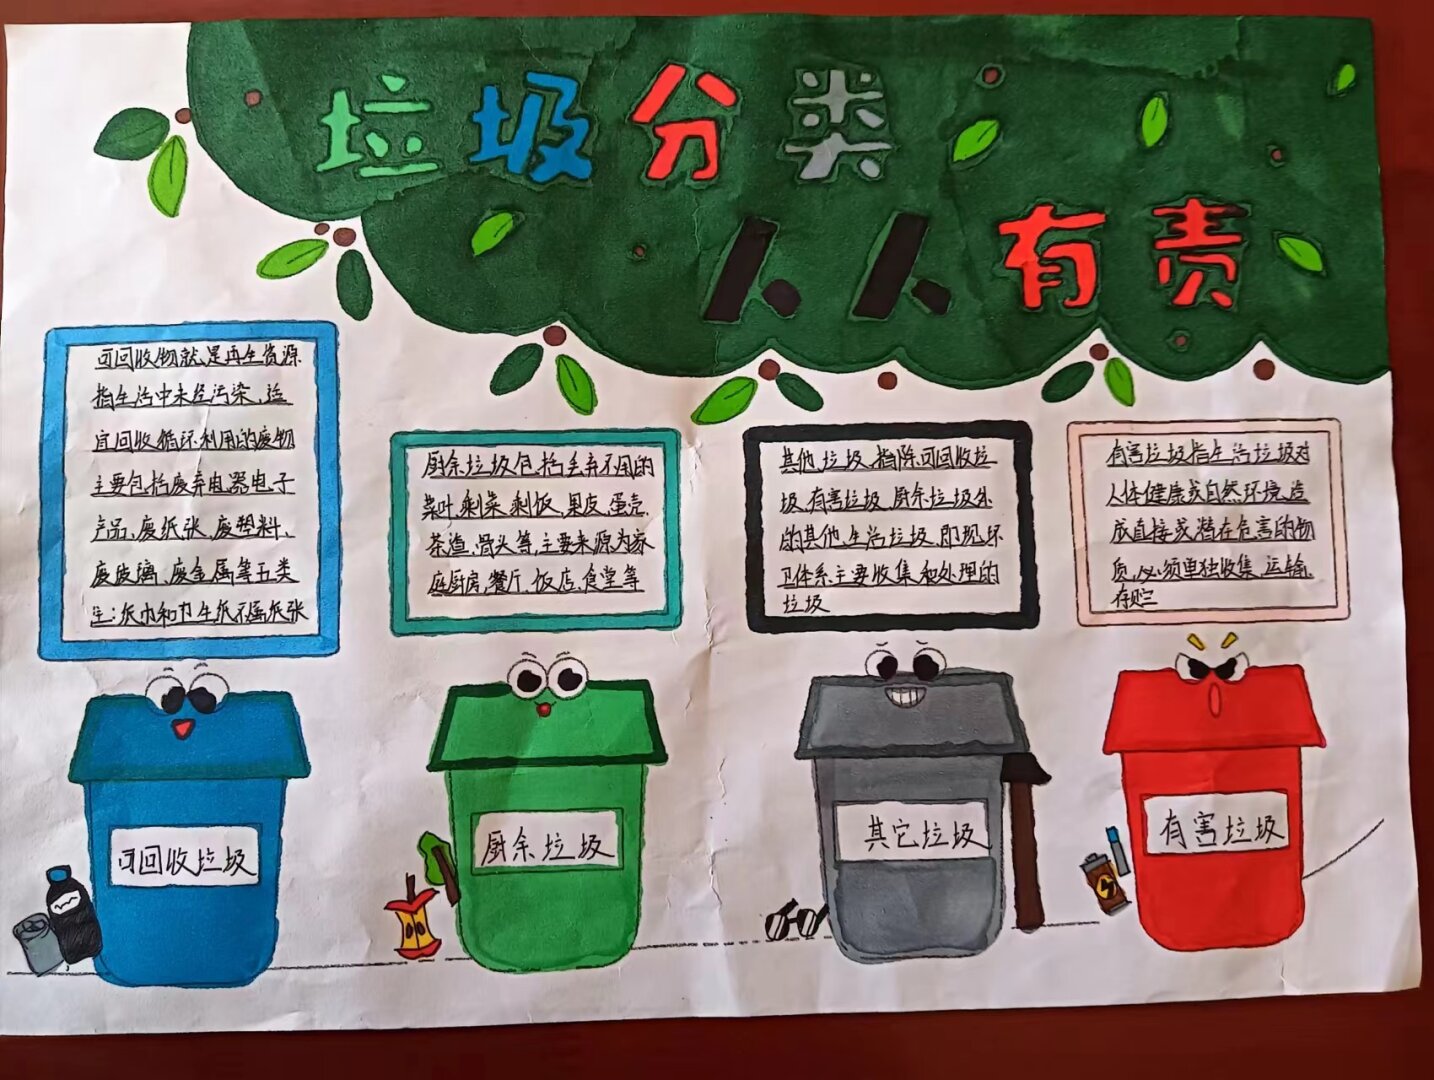 垃圾分类
人人有责
可回收物就是再生资源
指生活中未经污染、适
宜回收循环利用的废物
主要包括废弃电器电子
产品、废纸张、废塑料、
废玻璃、废金属等五类
注:纸巾和卫生纸不属纸张
厨余垃圾包括丢弃不用的
菜叶、剩菜、剩饭、果皮、蛋壳、
茶渣、骨头等,主要来源为家
庭厨房、餐厅、饭店、食堂等
其他垃圾,指除可回收垃
圾、有害垃圾、厨余垃圾外
的其他生活垃圾,即现环
卫体系主要收集和处理的
垃圾
有害垃圾指生活垃圾对
人体健康或自然环境造
成直接或潜在危害的物
质,必须单独收集、运输、
存贮
可回收垃圾
厨余垃圾
其它垃圾
有害垃圾